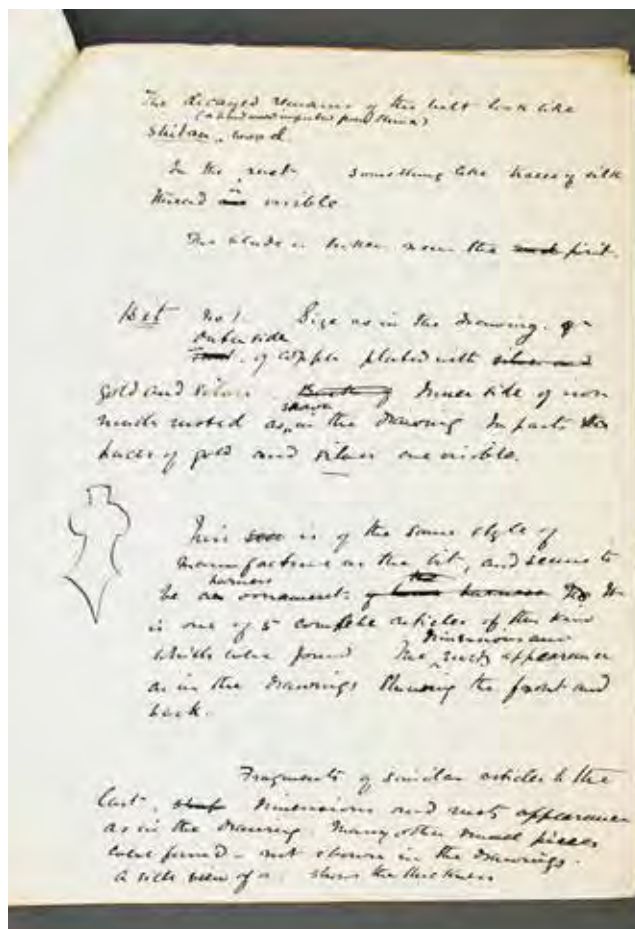 The decayed remains of the hilt look like
(a hard wood imported from China)
shitan wood.
In the rust something like traces of silk
thread is visible
The blade is broken near the point.
Bit No 1. Size as in the drawing.
Outer side
of copper plated with silver and
gold and silver. Inner side of iron
shown
much rusted as in the drawing In parts the
traces of gold and silver are visible.
This is of the same style of
manufacture as the bit, and seems to
harness
be an ornament of harness It
is one of 5 complete articles of this kind
dimensions and
which were found The rusty appearance
as in the drawings showing the front and
back.
Fragments of similar articles to the
last, dimensions and rusty appearance
as in the drawing. Many other small pieces
were found - not shown in the drawings.
A side view of a. shows the thickness